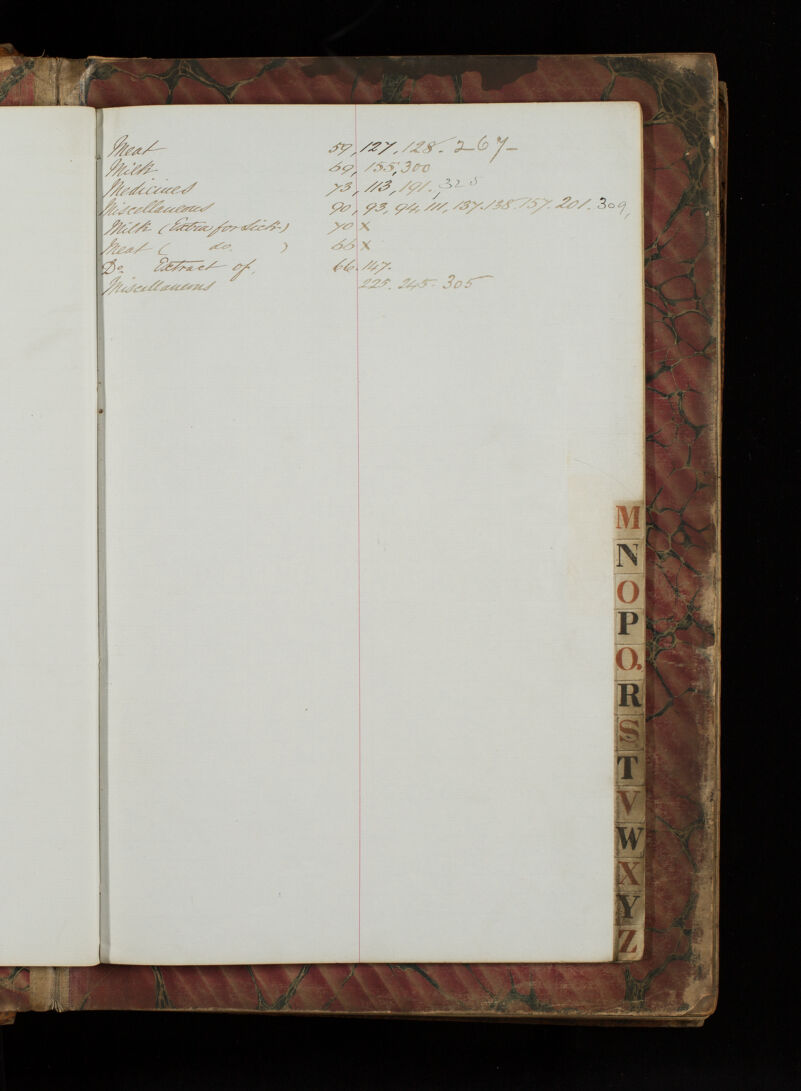 Meat 59, 127, 128. 267-
Milk 69, 155, 300
Medicines 73, 113, 191., 325
Miscellaneous 90, 93, 94, 111, 137. 138. 157. 201. 309,
Milk (Extra for Sick) 70 X
Meat ( do. ) 66 X
Do. Extract of. 66. 147.
Miscellaneous 225. 245. 305
M
N
O
P
Q.
R
S
T
V
W
X
Y
Z